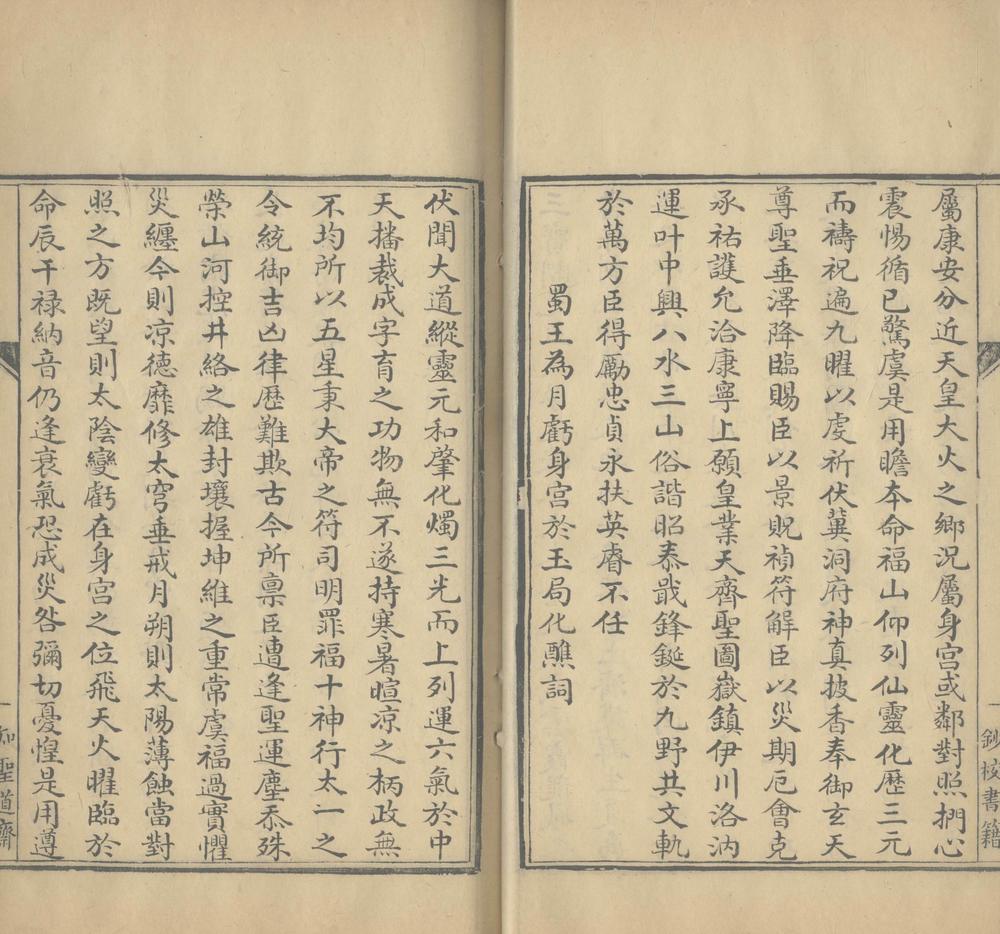 屬康安分近天皇大火之鄉況屬身宮或鄰對照捫心
震惕循已驚虞是用瞻本命福山仰列仙靈化歷三元
而禱祝遍九曜以虔祈伏冀洞府神真披香奉御玄天
尊聖垂澤降臨賜臣以景貺禎符解臣以災期厄會克
承祐護允洽康寧上願皇業天齊聖圖嶽鎮伊川洛汭
運叶中興八水三山俗諧昭泰戢鋒鋋於九野共文軌
於萬方臣得勵忠貞永扶英睿不任
蜀王為月虧身宮於玉局化醮詞
伏聞大道縱靈元和肇化燭三光而上列運六氣於中
天播裁成字育之功物無不遂持寒暑暄凉之柄政無
不均所以五星秉大帝之符司明罪福十神行太一之
令統御吉凶律歷難欺古今所禀臣遭逢聖運塵忝殊
榮山河控井絡之雄封壤握坤維之重常虞福過實懼
災纏今則凉德靡修太穹垂戒月朔則太陽薄蝕當對
照之方既望則太陰變虧在身宮之位飛天火曜臨於
命辰干祿納音仍逢衰氣恐成災咎彌切憂惶是用遵
鈔校書籍
知聖道齋